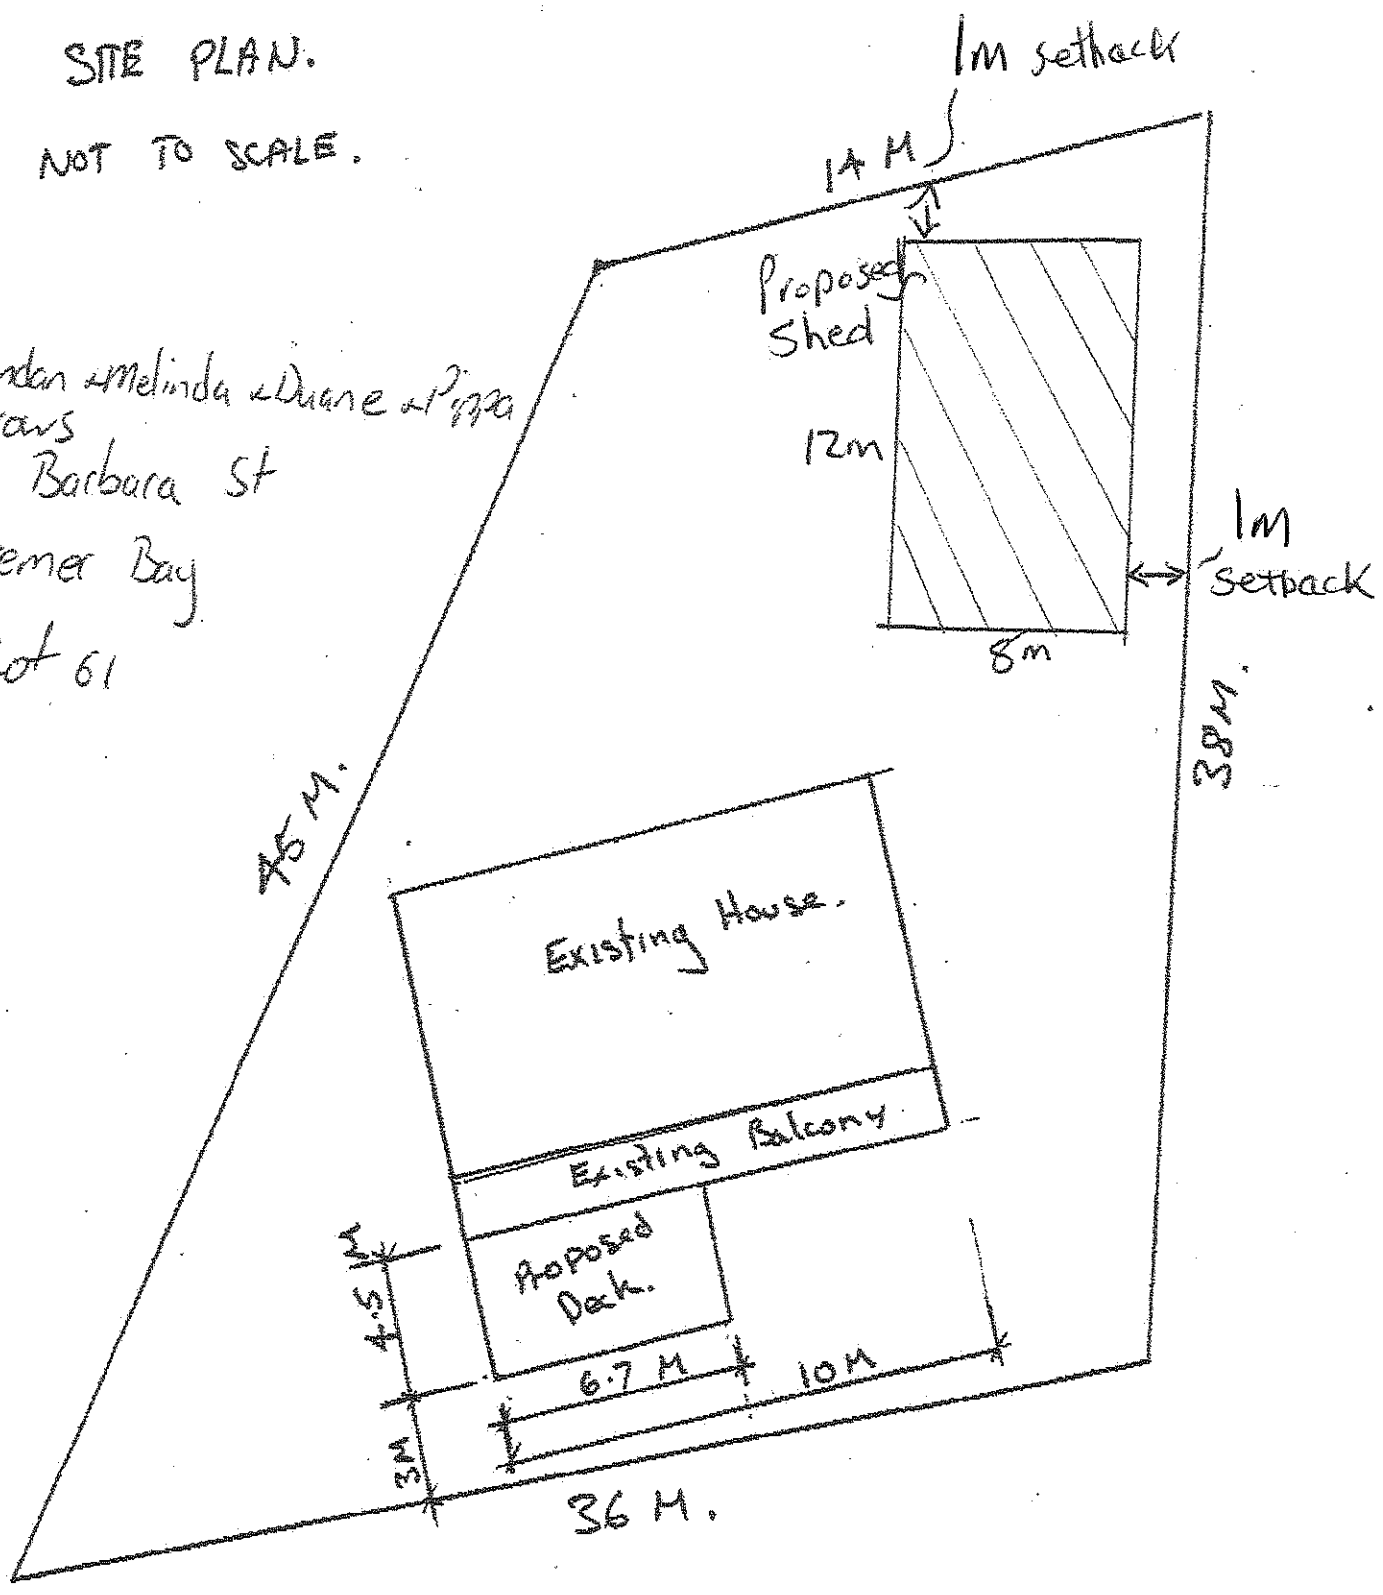 SITE PLAN.
NOT TO SCALE.
1m setback
14 M
Proposed
Shed
12m
8m
1m
setback
38 M.
ndan & Melinda & Duane & Pippa
Barbara St
emer Bay
Lot 61
45 M.
Existing House.
Existing Balcony
Proposed
Deck.
4.5 M
3M
6.7 M
10 M
36 M.